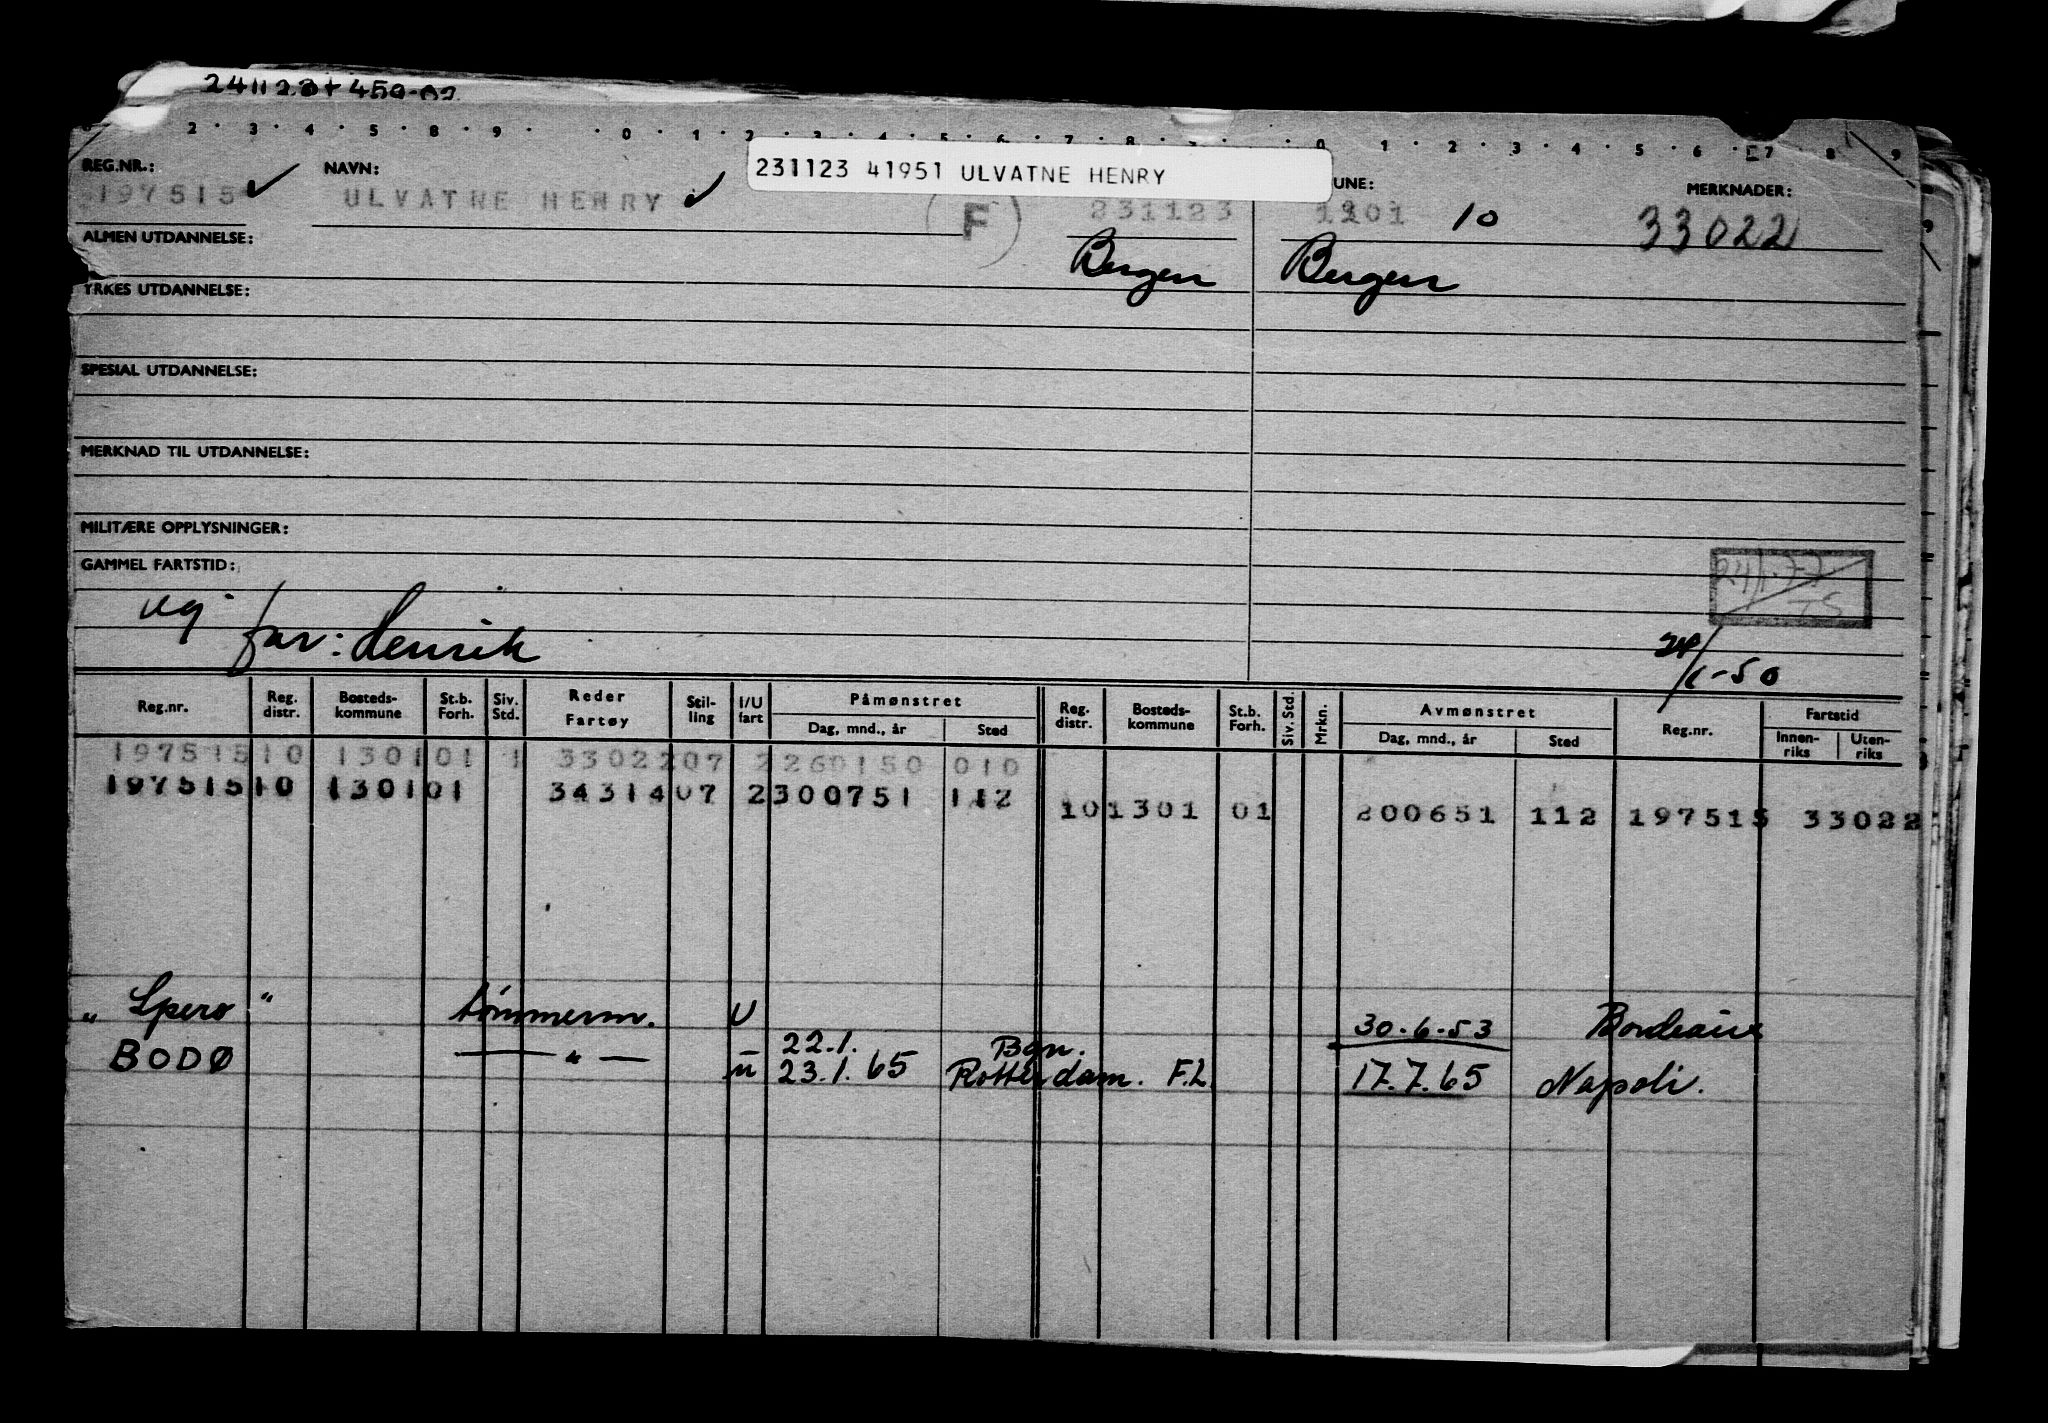 2 3 4 5 8 9 0 1 2 3 4 5 6 7 8 0 1 2 3 4 5 6 7 8 9
REG.NR.: NAVN: 231123 41951 ULVATNE HENRY UNE: MERKNADER:
197515 ULVATNE HENRY F 231123 1301 10 33022
ALMEN UTDANNELSE: Bergen Bergen
YRKES UTDANNELSE:
SPESIAL UTDANNELSE:
MERKNAD TIL UTDANNELSE:
MILITÆRE OPPLYSNINGER:
GAMMEL FARTSTID:
far: Henrik
24/1-50
Reg.nr. Reg. distr. Bosteds-kommune St.b. Forh. Siv. Std. Reder Fartøy Stil-ling I/U fart Påmønstret Dag, mnd., år Sted Reg. distr. Bosteds-kommune St.b. Forh. Siv. Std. Mrkn. Avmønstret Dag, mnd., år Sted Reg.nr. Fartstid Innen-riks Uten-riks
197515 10 1301 01 1 33022 07 2 260150 010
197515 10 1301 01 34314 07 2 300751 112 10 1301 01 200651 112 197515 33022
"Spero" tømmerm. U 30.6.53 Bordeaux
BODØ — " — 22.1. Bgn.
u 23.1.65 Rotterdam. F.L 17.7.65 Napoli.